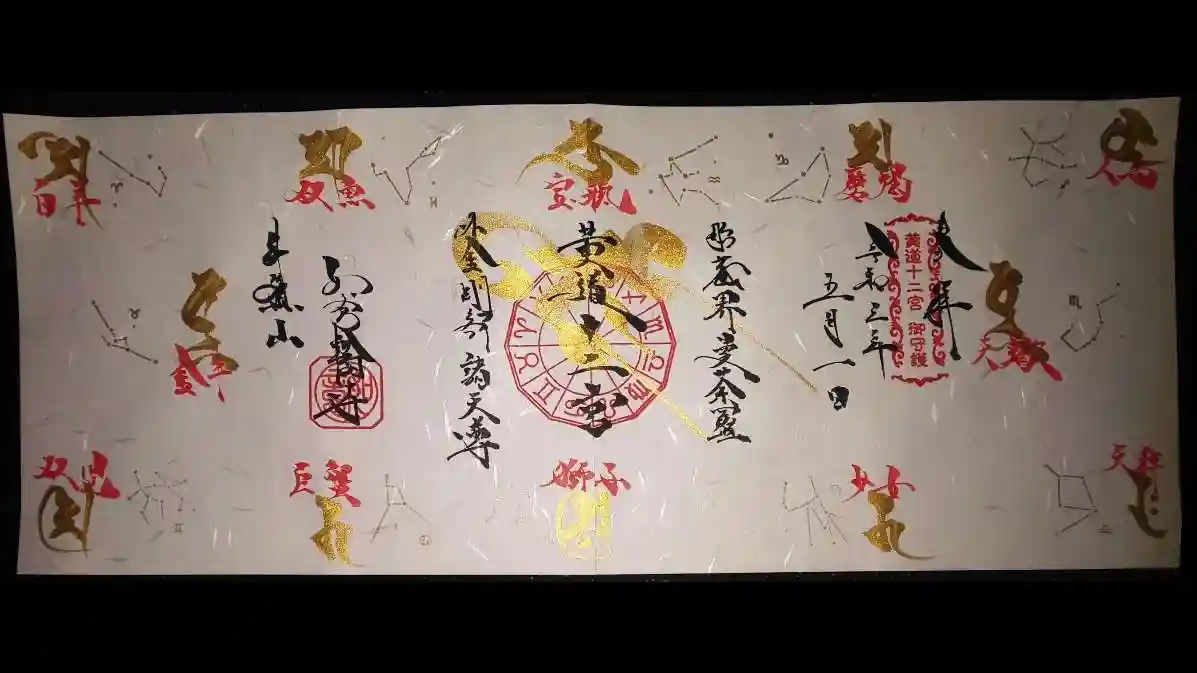 人馬
磨羯
宝瓶
双魚
白羊
奉拝
黄道十二宮 御守護
令和三年
五月一日
胎蔵界曼荼羅
黄道十二宮
外金剛部諸天尊
天蠍
金牛
天秤
獅子
巨蟹
双児